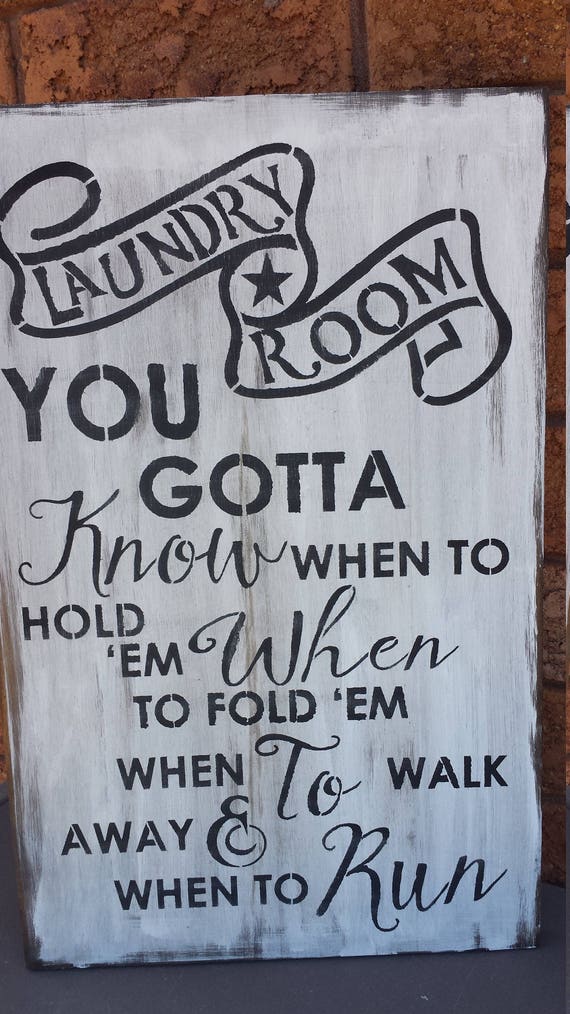 LAUNDRY
ROOM
YOU
GOTTA
Know WHEN TO
HOLD
'EM When
TO FOLD 'EM
WHEN To WALK
AWAY &
WHEN TO Run